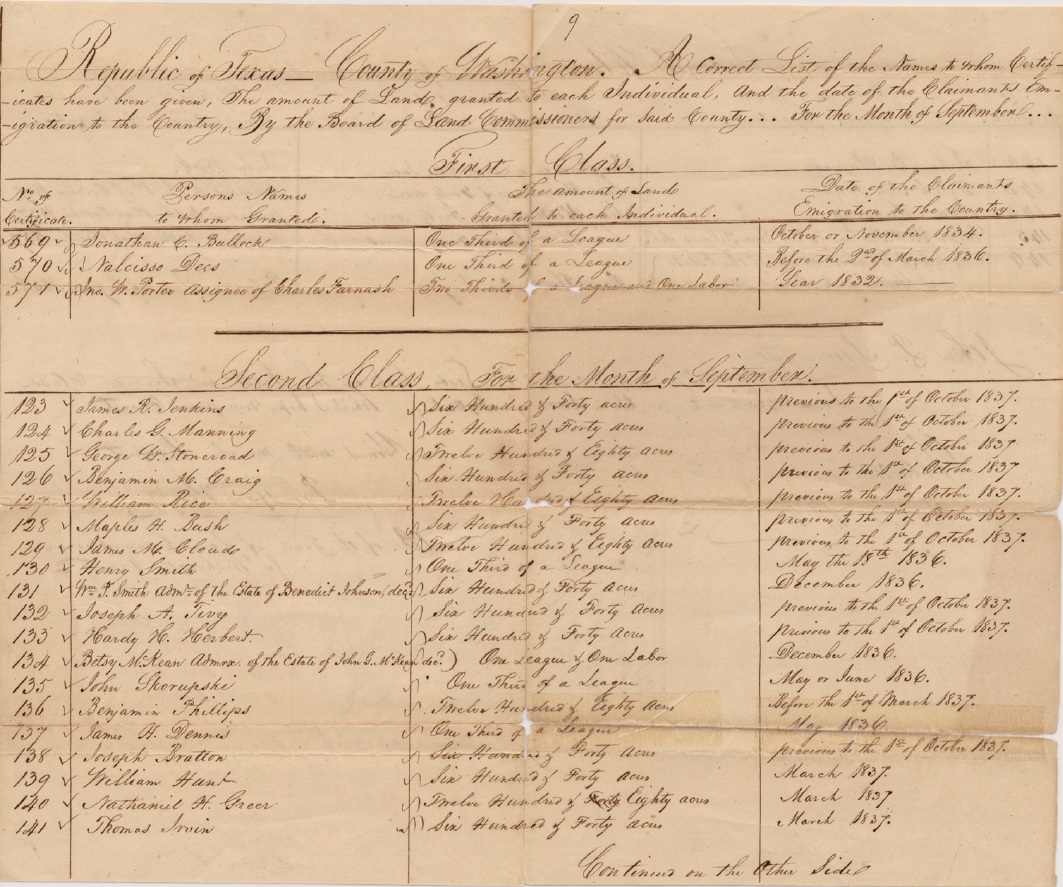 9
Republic of Texas — County of Washington. A Correct List of the Names to whom Certif-
-icates have been given, The amount of Land, granted to each Individual, And the date of the Claimants Em-
-igration to the Country, By the Board of Land Commissioners for said County... For the Month of September...
First Class.
No. of Certificate. Persons Names to whom Granted. The amount of Land Granted to each Individual. Date of the Claimants Emigration to the Country.
569 Jonathan C. Bullock One Third of a League October or November 1834.
570 Nalcisso Dees One Third of a League Before the 2nd of March 1836.
571 Jno. W. Porter assignee of Charles Farnash Two Thirds of a League and One Labor Year 1832.
Second Class, For the Month of September.
123 James R. Jenkins Six Hundred & Forty acres previous to the 1st of October 1837.
124 Charles G. Manning Six Hundred & Forty acres previous to the 1st of October 1837.
125 George D. Stoneroad Twelve Hundred & Eighty acres previous to the 1st of October 1837
126 Benjamin M. Craig Six Hundred & Forty acres previous to the 1st of October 1837
127 William Rice Twelve Hundred & Eighty acres previous to the 1st of October 1837.
128 Maples H. Bush Six Hundred & Forty acres previous to the 1st of October 1837.
129 James M. Cloud Twelve Hundred & Eighty acres previous to the 1st of October 1837.
130 Henry Smith One Third of a League May the 18th 1836.
131 Wm. P. Smith Admr. of the Estate of Benedict Johnson, decd. Six Hundred & Forty acres December 1836.
132 Joseph A. Tivy Six Hundred & Forty Acres previous to the 1st of October 1837.
133 Hardy H. Herbert Six Hundred & Forty Acres previous to the 1st of October 1837.
134 Betsy McKean Admrx. of the Estate of John G. McKean decd. One League & One Labor December 1836.
135 John Skorupski One Third of a League May or June 1836.
136 Benjamin Phillips Twelve Hundred & Eighty acres Before the 1st of March 1837.
137 James H. Dennis One Third of a League May 1836
138 Joseph Bratton Six Hundred & Forty acres previous to the 1st of October 1837.
139 William Hunt Six Hundred & Forty acres March 1837.
140 Nathaniel H. Greer Twelve Hundred & Forty Eighty acres March 1837
141 Thomas Irvin Six Hundred & Forty acres March 1837.
Continued on the Other Side